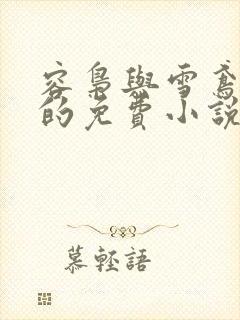 容梟與雪鳶
的免費小說
慕輕語